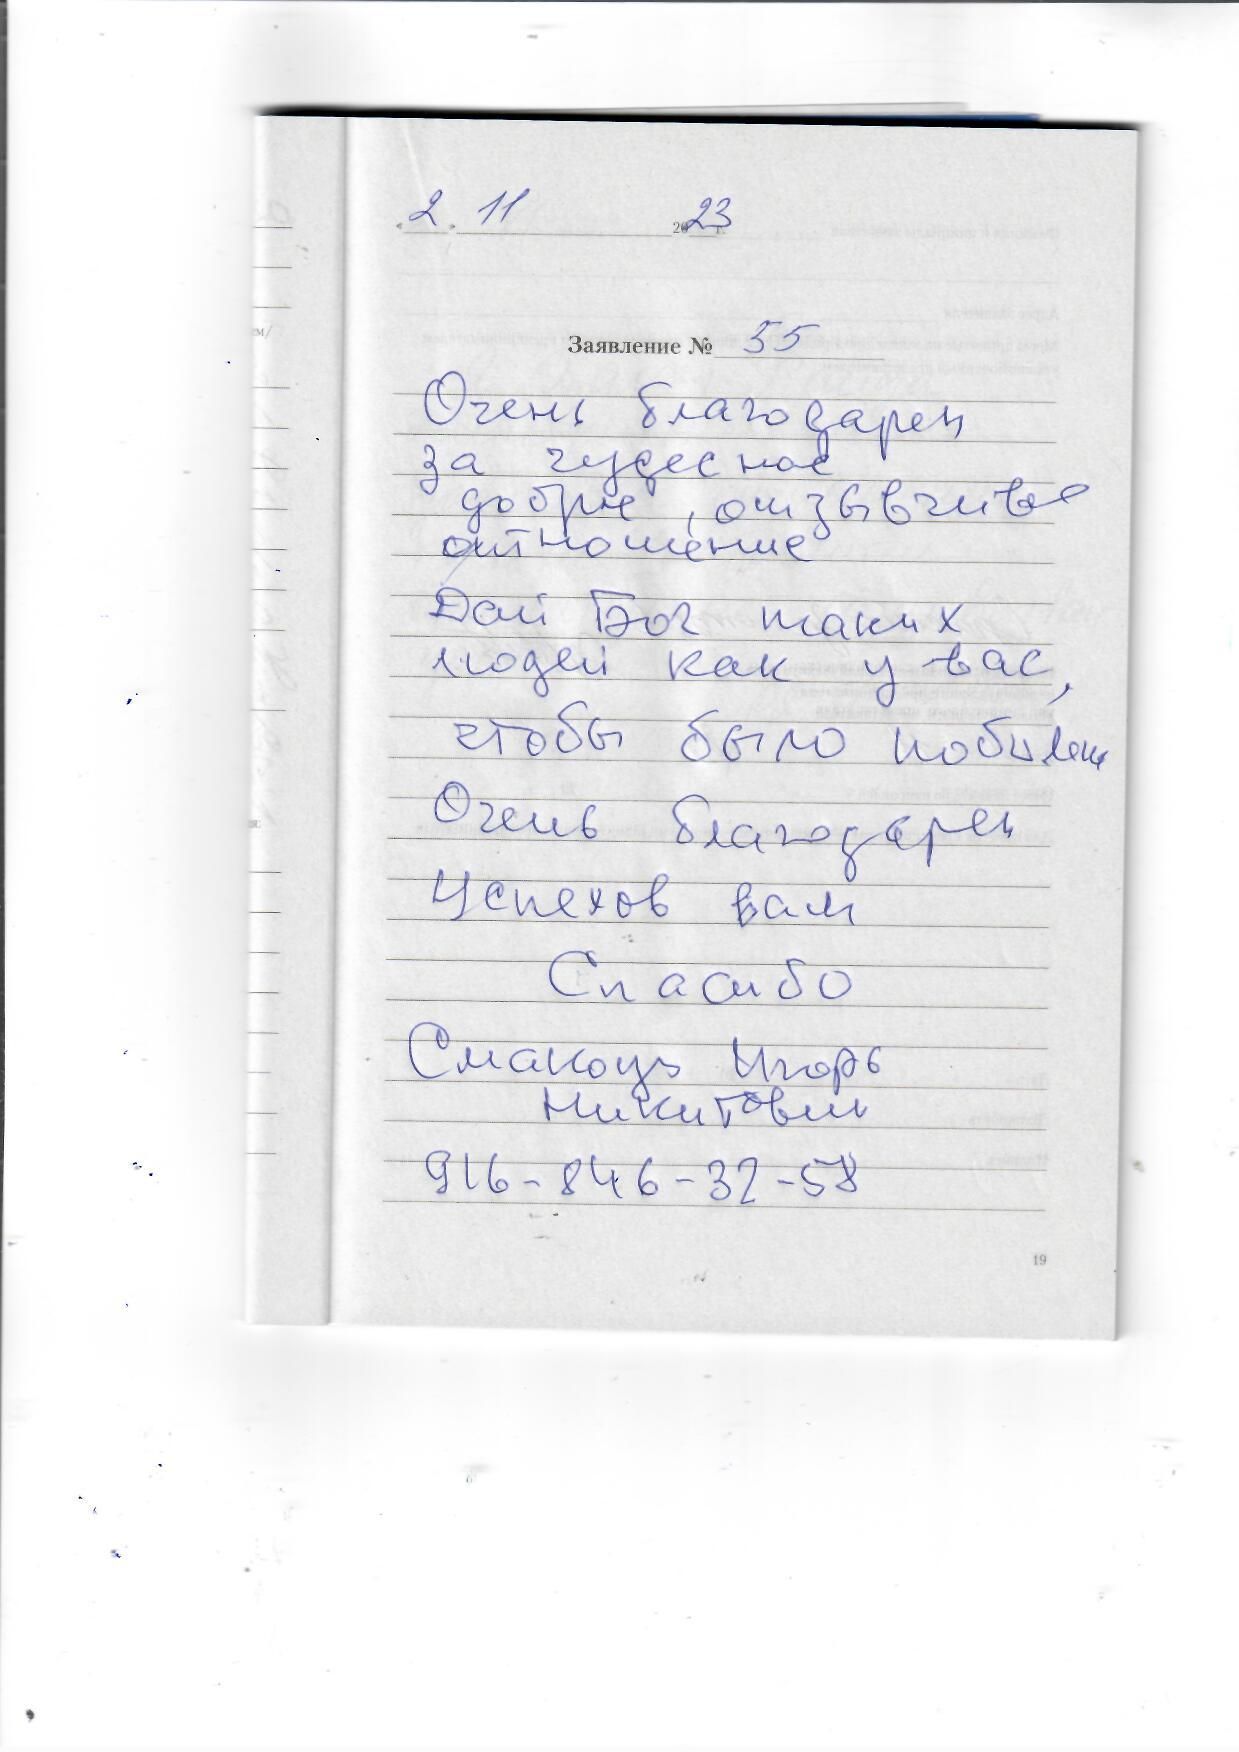 «2» 11 2023 г.
Заявление № 55
Очень благодарен
за чудесное
доброе, отзывчивое
отношение
Дай Бог таких
людей как у вас,
чтобы было побольше
Очень благодарен
Успехов вам
Спасибо
Игорь
Никитович
916-846-32-58
19